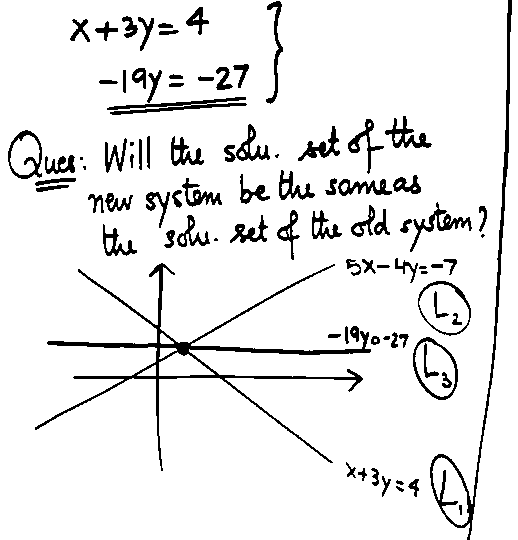 x+3y=4
-19y = -27
Ques: Will the solu. set of the
new system be the same as
the solu. set of the old system?
5x-4y=-7
L2
-19y=-27
L3
x+3y=4
L1